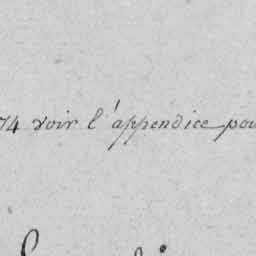 74 voir l'appendice pou